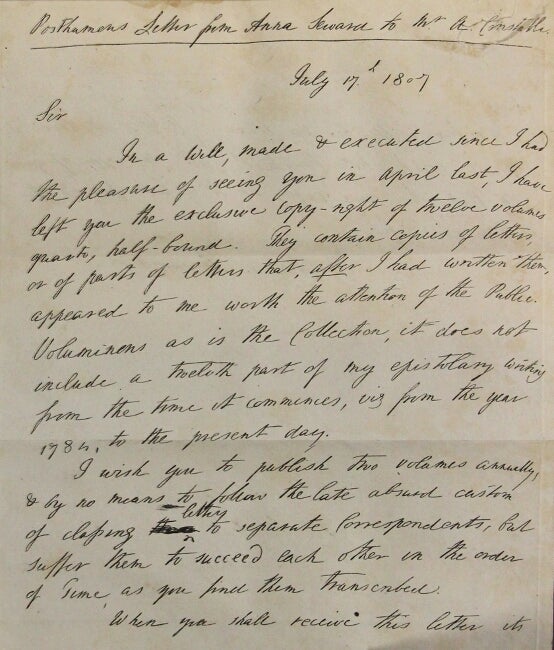 Posthumous Letter from Anna Seward to Mr A. Constable.
July 17th 1807
Sir
In a will, made & executed since I had
the pleasure of seeing you in April last, I have
left you the exclusive copy-right of twelve volumes
quarto, half-bound. They contain copies of letters,
or of parts of letters that, after I had written them,
appeared to me worth the attention of the Public.
Voluminous as is the Collection, it does not
include a twelfth part of my epistolary writing
from the time it commences, viz from the year
1784, to the present day.
I wish you to publish two volumes annually,
& by no means to follow the late absurd custom
of classing letters to separate Correspondents, but
suffer them to succeed each other in the order
of Time, as you find them transcribed.
When you shall receive this letter its